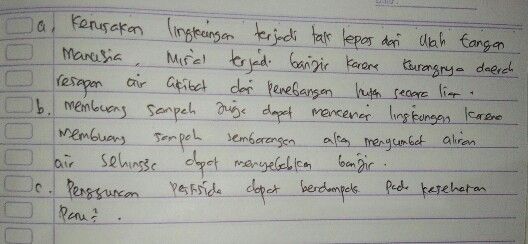 a. Kerusakan lingkungan terjadi tak lepas dari ulah tangan
manusia, misal terjadi banjir karena kurangnya daerah
resapan air akibat dari penebangan hutan secara liar.
b. membuang sampah juga dapat mencemari lingkungan karena
membuang sampah sembarangan akan mengumbat aliran
air sehingga dapat menyebabkan banjir.
c. Penggunaan pestisida dapat berdampak pada kesehatan
Paru².